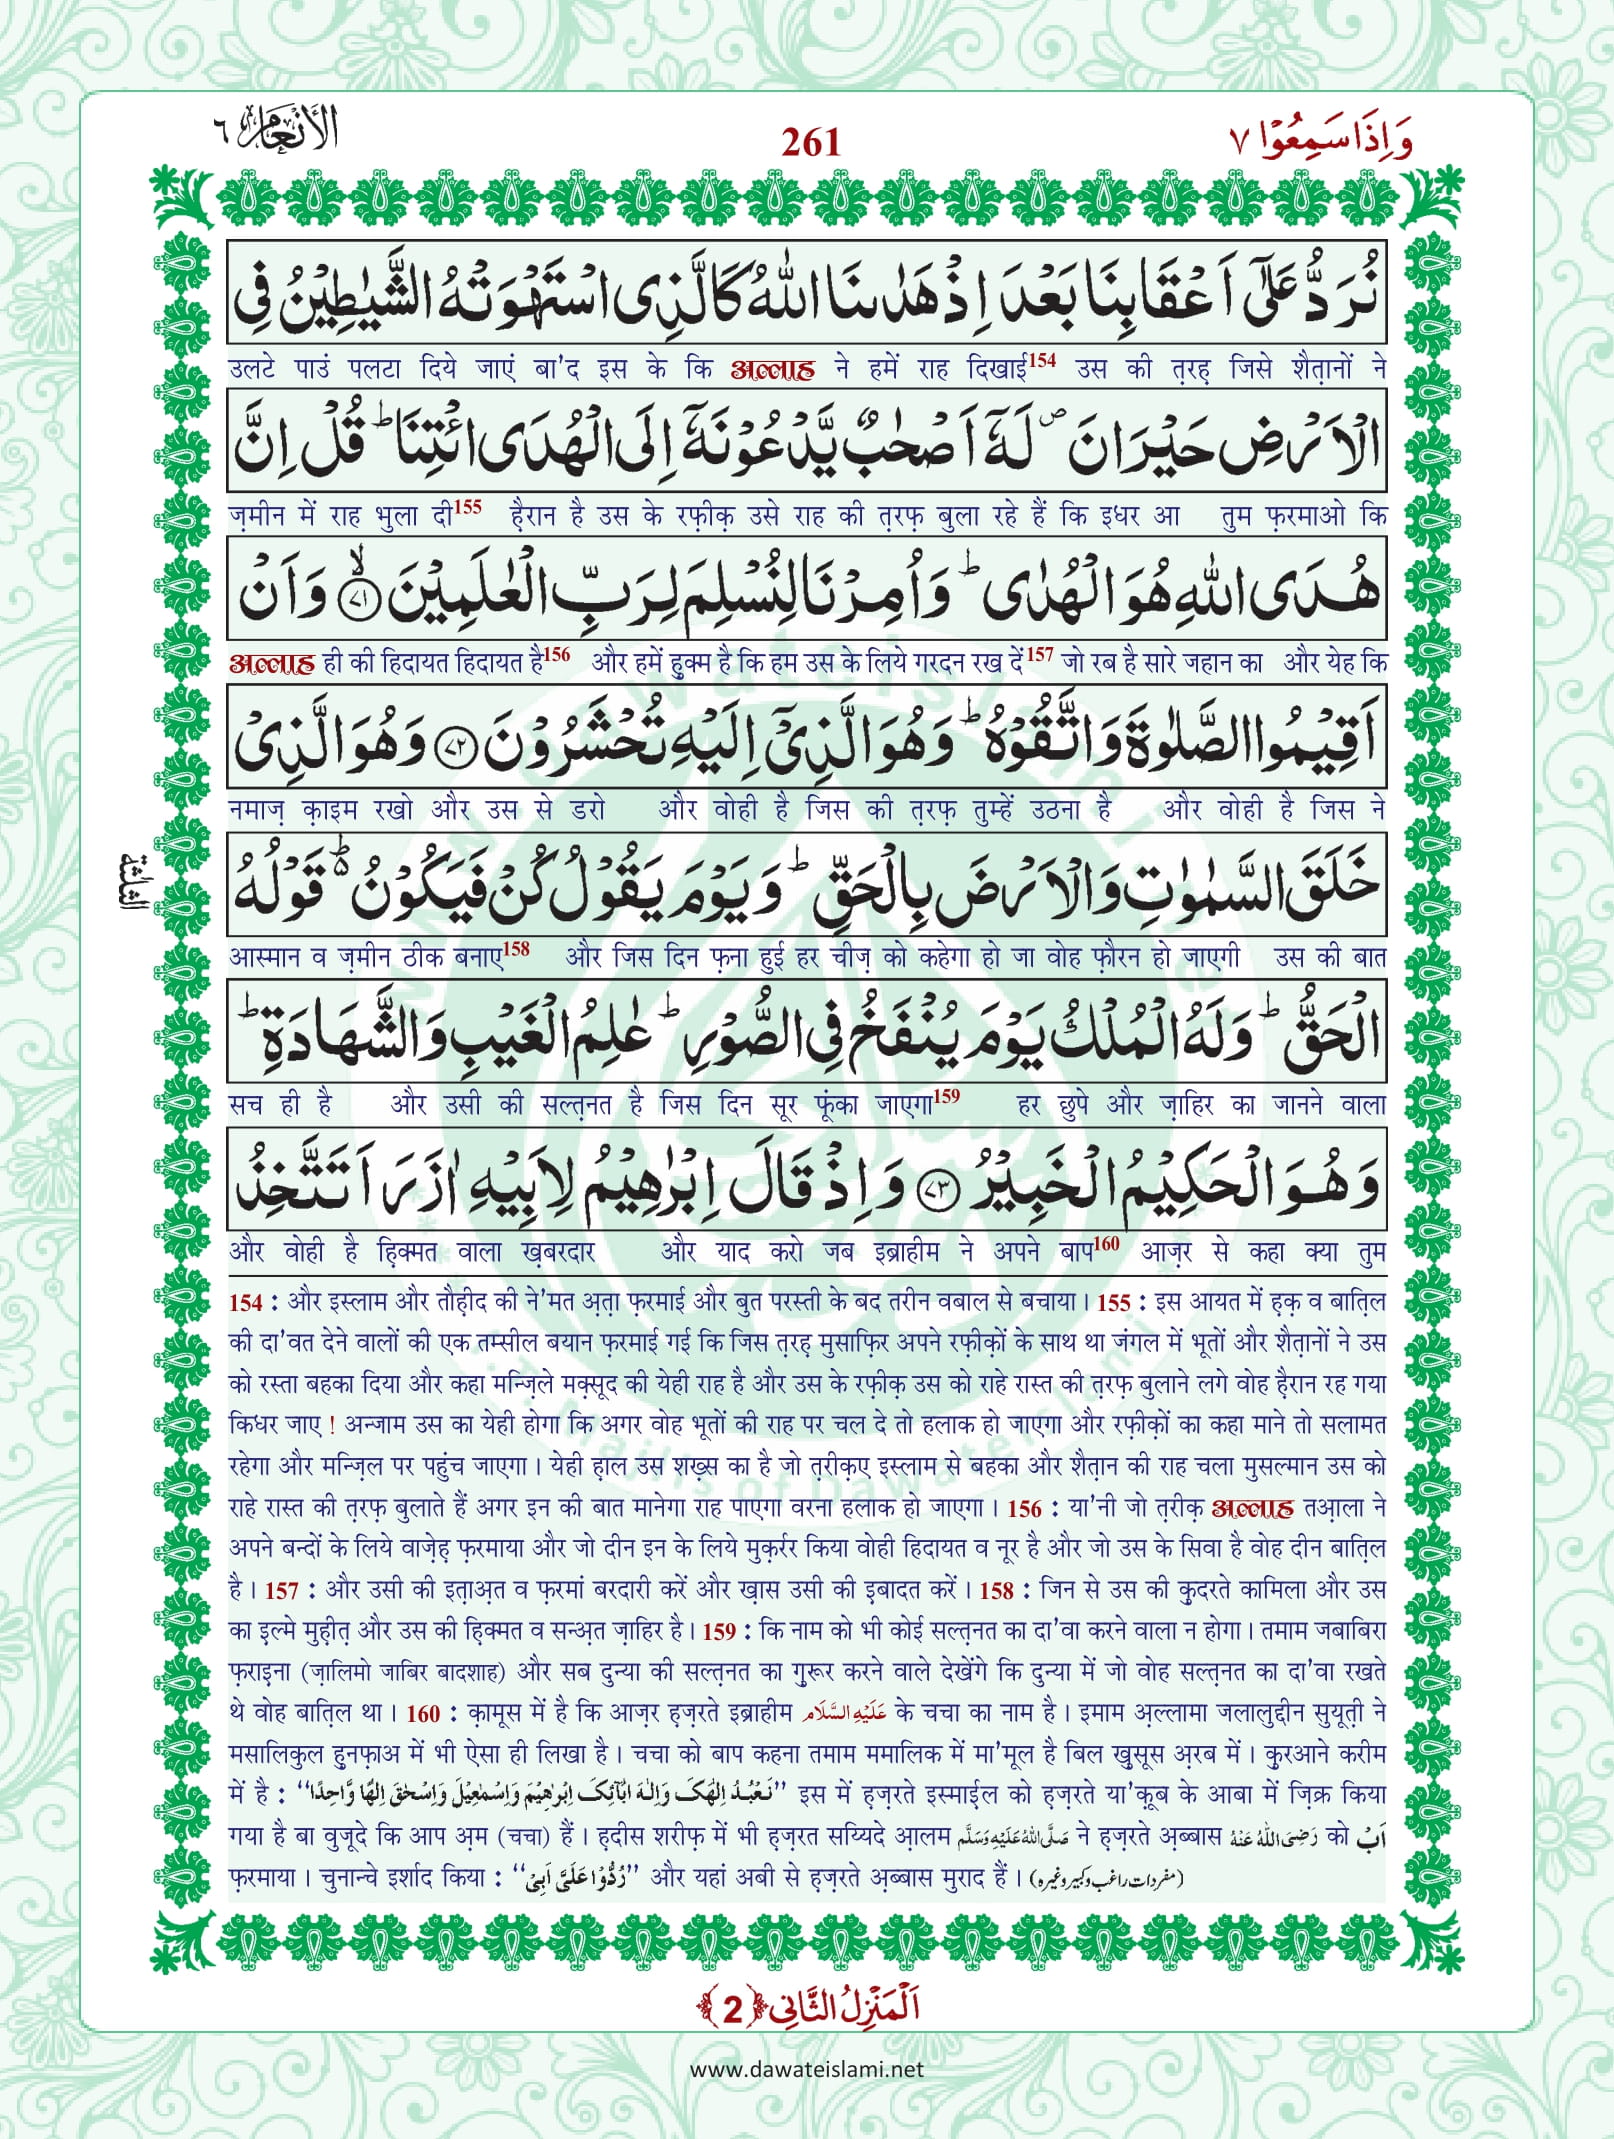 وَاِذَا سَمِعُوْا ٧ 261 الْاَنْعَام ٦
نُرَدُّ عَلٰۤى اَعْقَابِنَا بَعْدَ اِذْ هَدٰىنَا اللّٰهُ كَالَّذِی اسْتَهْوَتْهُ الشَّیٰطِیْنُ فِی
उलटे पाउं पलटा दिये जाएं बा'द इस के कि अल्लाह ने हमें राह दिखाई154 उस की त़रह़ जिसे शैत़ानों ने
الْاَرْضِ حَیْرَانَ ۪ لَهٗۤ اَصْحٰبٌ یَّدْعُوْنَهٗۤ اِلَى الْهُدَى ائْتِنَا ؕ قُلْ اِنَّ
ज़मीन में राह भुला दी155 ह़ैरान है उस के रफ़ीक़ उसे राह की त़रफ़ बुला रहे हैं कि इधर आ तुम फ़रमाओ कि
هُدَى اللّٰهِ هُوَ الْهُدٰى ؕ وَ اُمِرْنَا لِنُسْلِمَ لِرَبِّ الْعٰلَمِیْنَ ۙ﴿٧١﴾ وَ اَنْ
अल्लाह ही की हिदायत हिदायत है156 और हमें हुक्म है कि हम उस के लिये गरदन रख दें157 जो रब है सारे जहान का और येह कि
اَقِیْمُوا الصَّلٰوةَ وَ اتَّقُوْهُ ؕ وَ هُوَ الَّذِیْۤ اِلَیْهِ تُحْشَرُوْنَ ﴿٧٢﴾ وَ هُوَ الَّذِیْ
नमाज़ क़ाइम रखो और उस से डरो और वोही है जिस की त़रफ़ तुम्हें उठना है और वोही है जिस ने
خَلَقَ السَّمٰوٰتِ وَ الْاَرْضَ بِالْحَقِّ ؕ وَ یَوْمَ یَقُوْلُ كُنْ فَیَكُوْنُ ۬ؕ قَوْلُهُ
الثلثة
आस्मान व ज़मीन ठीक बनाए158 और जिस दिन फ़ना हुई हर चीज़ को कहेगा हो जा वोह फ़ौरन हो जाएगी उस की बात
الْحَقُّ ؕ وَ لَهُ الْمُلْكُ یَوْمَ یُنْفَخُ فِی الصُّوْرِ ؕ عٰلِمُ الْغَیْبِ وَ الشَّهَادَةِ ؕ
सच ही है और उसी की सल्त़नत है जिस दिन सूर फूंका जाएगा159 हर छुपे और ज़ाहिर का जानने वाला
وَ هُوَ الْحَكِیْمُ الْخَبِیْرُ ﴿٧٣﴾ وَ اِذْ قَالَ اِبْرٰهِیْمُ لِاَبِیْهِ اٰزَرَ اَتَتَّخِذُ
और वोही है ह़िक्मत वाला ख़बरदार और याद करो जब इब्राहीम ने अपने बाप160 आज़र से कहा क्या तुम
154 : और इस्लाम और तौह़ीद की ने'मत अ़त़ा फ़रमाई और बुत परस्ती के बद तरीन वबाल से बचाया। 155 : इस आयत में ह़क़ व बात़िल
की दा'वत देने वालों की एक तम्सील बयान फ़रमाई गई कि जिस त़रह़ मुसाफ़िर अपने रफ़ीक़ों के साथ था जंगल में भूतों और शैत़ानों ने उस
को रस्ता बहका दिया और कहा मन्ज़िले मक़्सूद की येही राह है और उस के रफ़ीक़ उस को राहे रास्त की त़रफ़ बुलाने लगे वोह ह़ैरान रह गया
किधर जाए ! अन्जाम उस का येही होगा कि अगर वोह भूतों की राह पर चल दे तो हलाक हो जाएगा और रफ़ीक़ों का कहा माने तो सलामत
रहेगा और मन्ज़िल पर पहुंच जाएगा। येही ह़ाल उस शख़्स का है जो त़रीक़ए इस्लाम से बहका और शैत़ान की राह चला मुसल्मान उस को
राहे रास्त की त़रफ़ बुलाते हैं अगर इन की बात मानेगा राह पाएगा वरना हलाक हो जाएगा। 156 : या'नी जो त़रीक़ अल्लाह तआ़ला ने
अपने बन्दों के लिये वाज़ेह़ फ़रमाया और जो दीन इन के लिये मुक़र्रर किया वोही हिदायत व नूर है और जो उस के सिवा है वोह दीन बात़िल
है। 157 : और उसी की इत़ाअ़त व फ़रमां बरदारी करें और ख़ास उसी की इ़बादत करें। 158 : जिन से उस की कु़दरते कामिला और उस
का इ़ल्मे मुह़ीत़ और उस की ह़िक्मत व सन्अ़त ज़ाहिर है। 159 : कि नाम को भी कोई सल्त़नत का दा'वा करने वाला न होगा। तमाम जबाबिरा
फ़राइना (ज़ालिमो जाबिर बादशाह) और सब दुन्या की सल्त़नत का गु़रूर करने वाले देखेंगे कि दुन्या में जो वोह सल्त़नत का दा'वा रखते
थे वोह बात़िल था। 160 : क़ामूस में है कि आज़र ह़ज़रते इब्राहीम عَلَيْهِ السَّلَام के चचा का नाम है। इमाम अ़ल्लामा जलालुद्दीन सुयूत़ी ने
मसालिकुल हु़नफ़ाअ में भी ऐसा ही लिखा है। चचा को बाप कहना तमाम ममालिक में मा'मूल है बिल ख़ुसूस अ़रब में। क़ुरआने करीम
में है : ‘‘نَعْبُدُ اِلٰهَكَ وَاِلٰهَ اٰبَآئِكَ اِبْرٰهِيْمَ وَاِسْمٰعِيْلَ وَاِسْحٰقَ اِلٰهًا وَّاحِدًا’’ इस में ह़ज़रते इस्माई़ल को ह़ज़रते या'क़ूब के आबा में ज़िक्र किया
गया है बा वुजूदे कि आप अ़म (चचा) हैं। ह़दीस शरीफ़ में भी ह़ज़रत सय्यिदे आ़लम صَلَّى اللهُ عَلَيْهِ وَسَلَّم ने ह़ज़रते अ़ब्बास رَضِىَ اللهُ عَنْهُ को اَبْ
फ़रमाया। चुनान्चे इर्शाद किया : ‘‘رُدُّوْا عَلَىَّ اَبِىْ’’ और यहां अबी से ह़ज़रते अ़ब्बास मुराद हैं। (مفردات راغب و کبیر وغیرہ)
اَلْمَنْزِلُ الثَّانِی ﴿2﴾
www.dawateislami.net